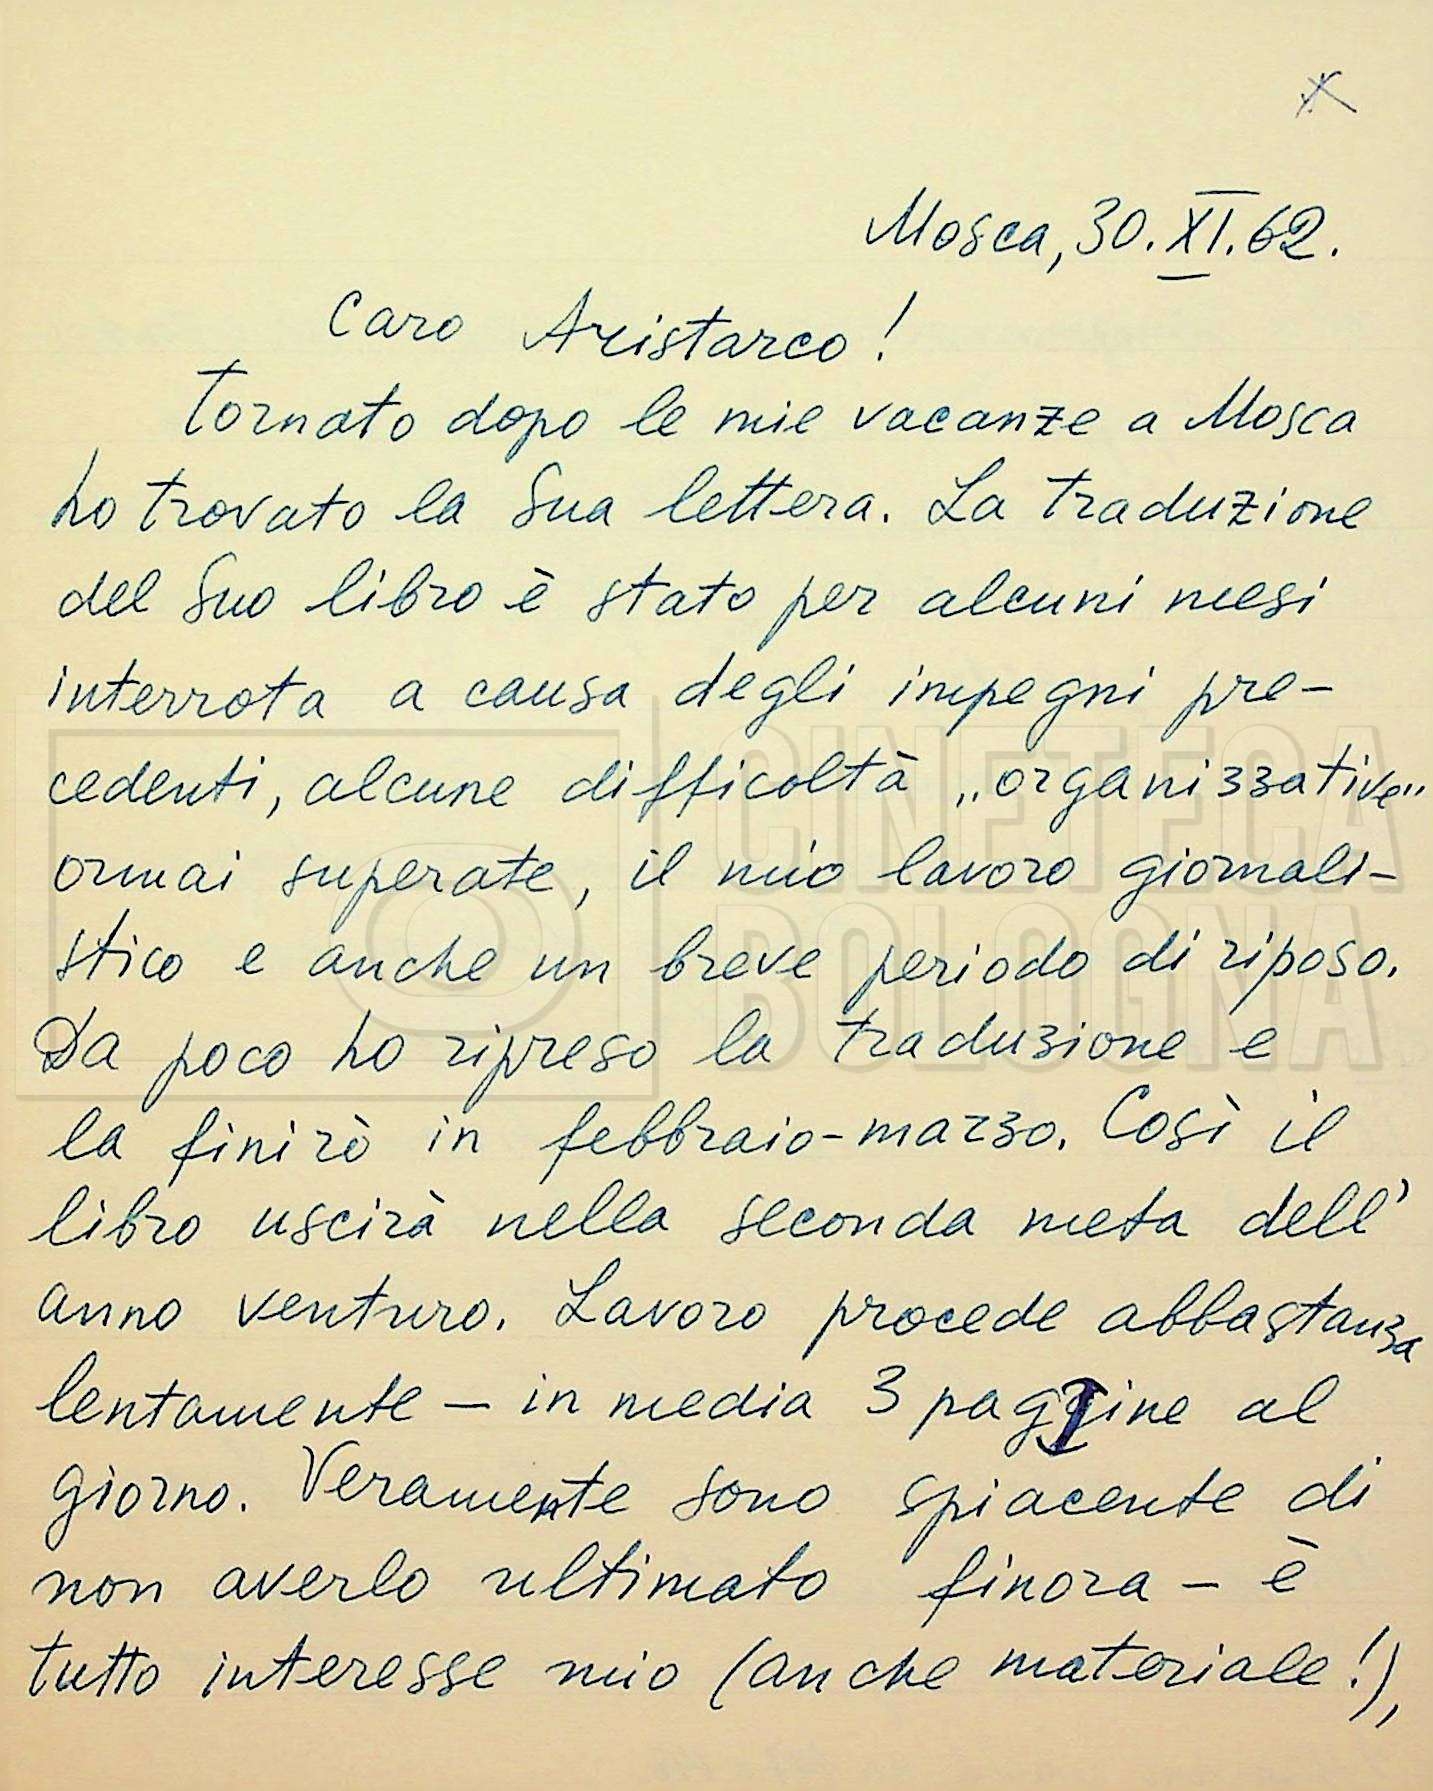 Mosca, 30.XI.62.
Caro Aristarco!
Tornato dopo le mie vacanze a Mosca
ho trovato la Sua lettera. La traduzione
del Suo libro è stato per alcuni mesi
interrota a causa degli impegni pre-
cedenti, alcune difficoltà „organizzative“
ormai superate, il mio lavoro giornali-
stico e anche un breve periodo di riposo.
Da poco ho ripreso la traduzione e
la finirò in febbraio-marzo. Così il
libro uscirà nella seconda meta dell'
anno venturo. Lavoro procede abbastanza
lentamente – in media 3 pagine al
giorno. Veramente sono spiacente di
non averlo ultimato finora – è
tutto interesse mio (anche materiale!),
CINETECA
BOLOGNA